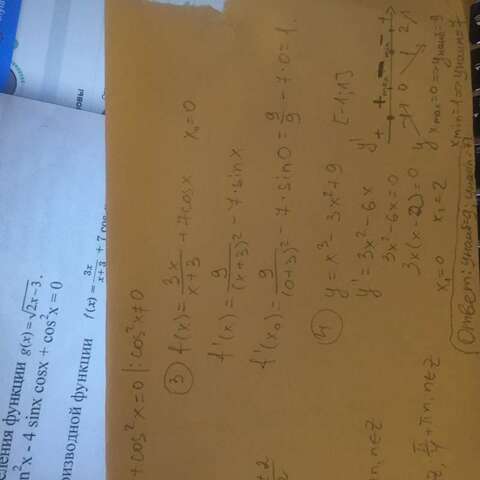 еления функции g(x) = √2x-3.
n²x - 4 sinx cosx + cos²x = 0
оизводной функции f(x) = 3x/(x+3) + 7 cos
овы
+ cos²x=0 |: cos²x≠0
③ f(x) = 3x/(x+3) + 7cosx x₀=0
f'(x) = 9/(x+3)² - 7·sinx
f'(x₀) = 9/(0+3)² - 7·sin0 = 9/9 - 7·0 = 1.
④ y = x³ - 3x² + 9 [-1;1]
y' = 3x² - 6x
3x² - 6x = 0
3x(x-2) = 0
x₁=0 x₂=2
y' + + max - min - +
-1 0 1 2
y
xmax=0 => yнаиб=9
xmin=1 => yнаим=7
πn, n∈Z
Z, π/4 + πn, n∈Z
Ответ: yнаиб=9; yнаим=7